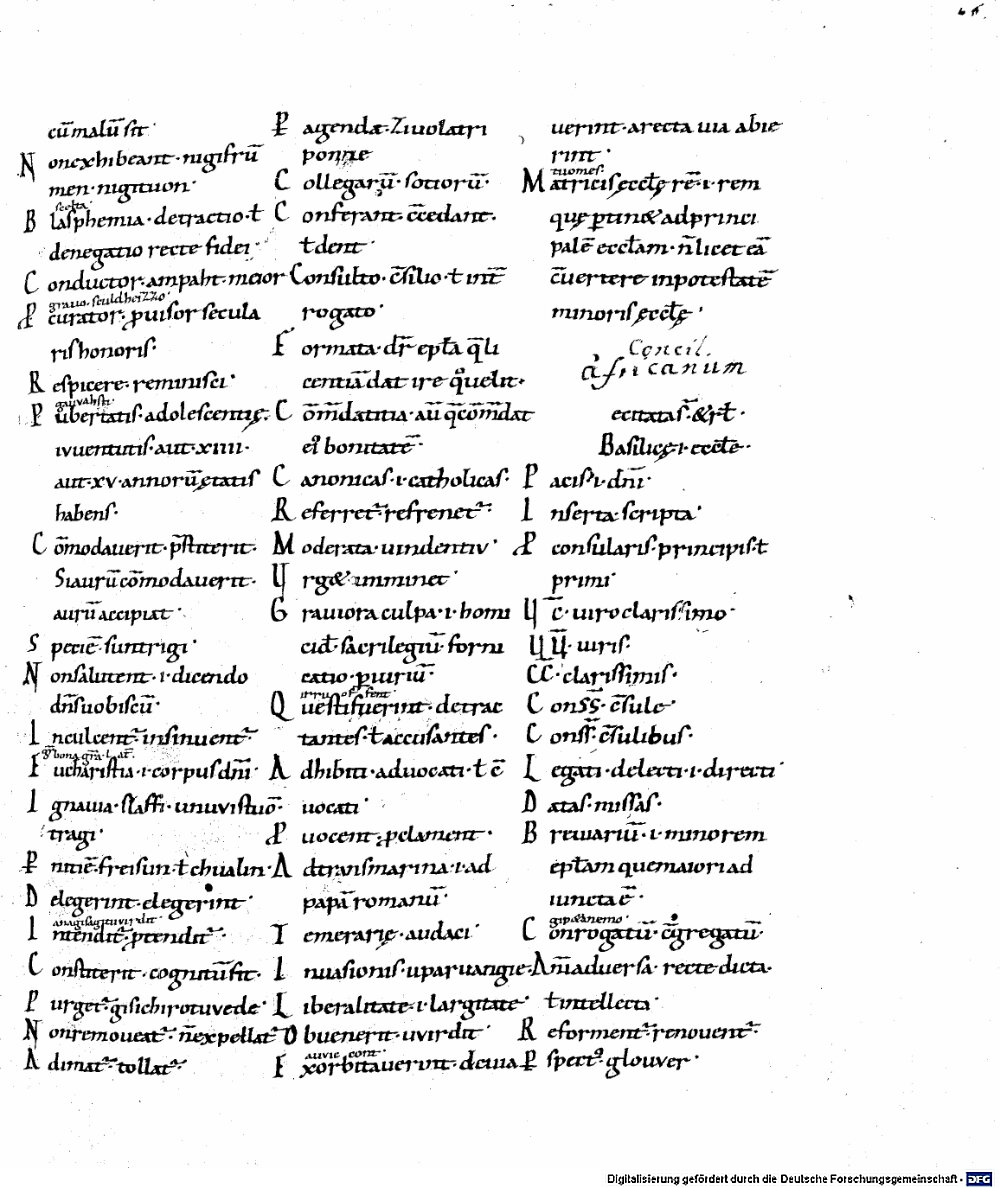 cū malū sit·
Nonexhibeant· nigifrū
men· nigituon·
scelta
Blasphemia· detractio· ł
denegatio recte fidei·
Conductor· ampaht· meior
grauo· sculdheizzo·
Procurator· ꝓuisor secula
ris honoris·
Respicere· reminisci·
Pubertatis· adolescentię·
iuuentutis· aut· xiiii·
aut· xv· annorū ętatis
habens·
Cōmodauerit· p̄stiterit·
Si aurū cōmodauerit·
aurū accipiat·
Speciē· suntrigi·
Non salutent· i· dicendo
dn̄s uobiscū·
Inculcent᷑· insinuent᷑·
Eucharistia· i· corpus dn̄i·
Ignauia· slaffi· unuvistuō·
tragi·
Delegerint· elegerint·
Intendit᷑· ꝓtendit᷑·
Constiterit· cognitū sit·
Purget᷑· gisichirotuvede·
Non remoueat᷑· n̄ expellat᷑
Adimat᷑· tollat᷑·
agenda· Ziuolatri
ponne
Collegarū· sotiorū·
Conferant· c̄cedant·
ł dent·
Consulto· c̄silio· ł int̄
rogato·
Formata· dr̄ epła q̄ li
centiā dat ire qͦ uelit·
Cōm̄datitia· aū q̄ cōm̄dat
ei bonitatē·
Canonicas· i· catholicas·
Referret᷑· refrenet᷑·
Moderata· uindentiv·
Urget· imminet·
Grauiora culpa· i· homi
cid· sacrilegiū· forni
catio· ꝑiuriū·
Questi fuerint· detrac
tantes· ł accusantes·
Adhibiti· aduocati· ł c̄
uocati·
Prouocent· ꝓclament·
Ad transmarina· i· ad
papā romanū·
Temerarię· audaci·
Inuasionis· uparuangie·
Liberalitate· i· largitate·
Obuenerit· uvirdit·
Exorbitauerint· deuia
uerint· a recta uia abie
rint·
Matricis ecctę rē· i· rem
quę ꝑtinet ad princi
palē ecctam· n̄ licet eā
c̄uertere in potestatē
minoris ecctę·
Concil.
africanum
ecitatas· & rł·
Basilicę· i· eccte·
Pacis· i· dn̄i·
Inserta· scripta·
Proconsularis· principis· ł
primi·
U c̄· uiro clarissimo·
UU· uiris·
CC· clarissimis·
Cons̄s̄· c̄sule·
Conss̄· c̄sulibus·
Legati· delecti· i· directi·
Datas· missas·
Breuiariū· i· minorem
epłam que maiori ad
iuncta ē·
gipetanemo·
Conrogatū· c̄gregatū·
Anīaduersa· recte dicta·
ł intellecta·
Reforment᷑· renouent᷑·
glouver·
Digitalisierung gefördert durch die Deutsche Forschungsgemeinschaft - DFG